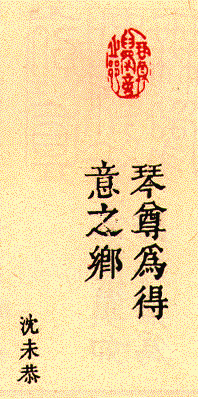 琴尊爲得
意之鄉
沈未恭